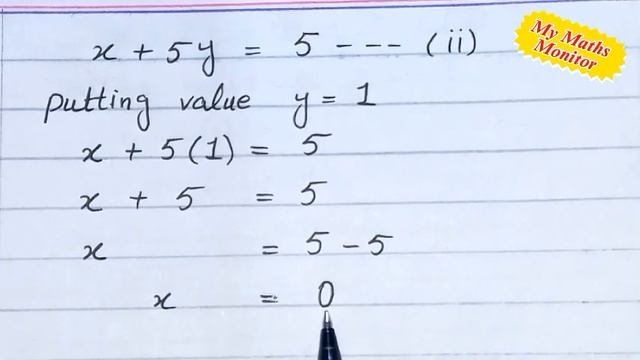 x + 5y = 5 --- (ii)
My Maths Monitor
putting value y = 1
x + 5(1) = 5
x + 5 = 5
x = 5 - 5
x = 0